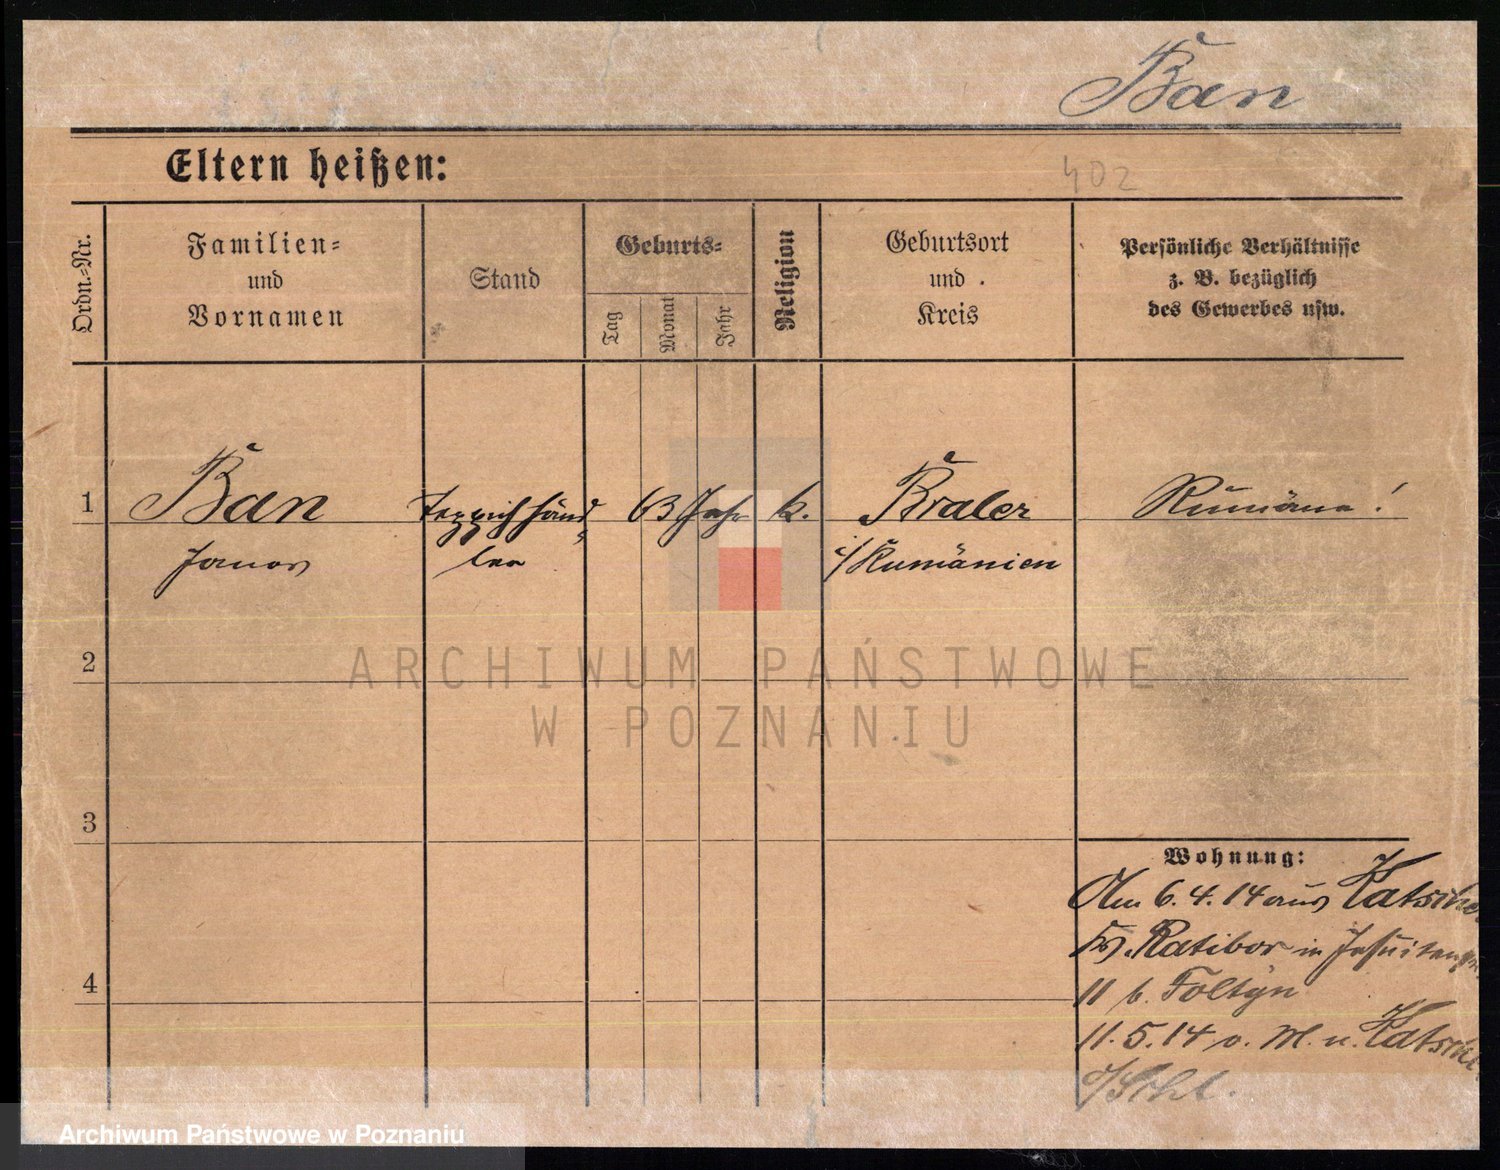 Ban
Eltern heißen:
402
Ordn.-Nr.
Familien-
und
Vornamen
Stand
Geburts-
Tag
Monat
Jahr
Religion
Geburtsort
und
Kreis
Persönliche Verhältnisse
z. B. bezüglich
des Gewerbes usw.
1
Ban
Teppichhänd
63 Jahr
k.
Braler
Rumäne!
Janos
ler
i/Rumänien
2
ARCHIWUM PAŃSTWOWE
W POZNANIU
3
Wohnung:
Am 6.4.14 aus Katscher
Kr. Ratibor in
11 b. Foltyn
11.5.14 o. M. n. Katscher
o/Schl.
4
Archiwum Państwowe w Poznaniu